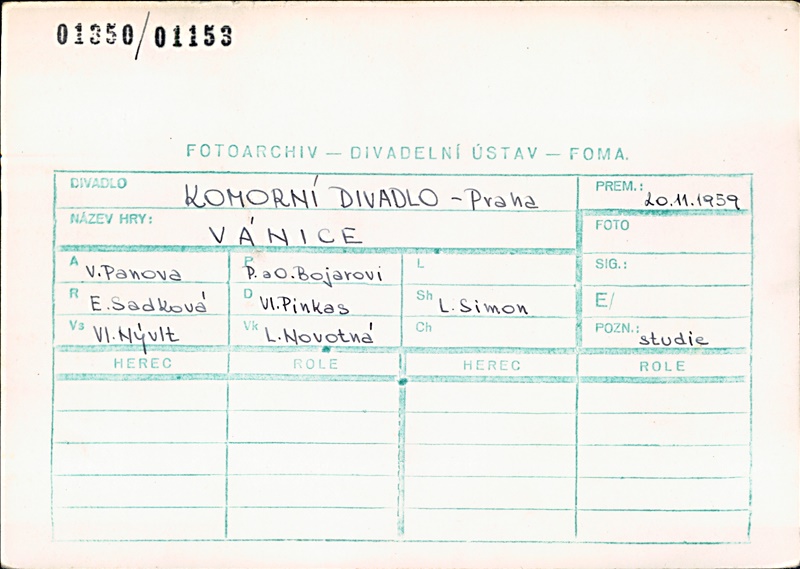 01350/01153
FOTOARCHIV — DIVADELNÍ ÚSTAV — FOMA.
DIVADLO KOMORNÍ DIVADLO - Praha PREM.: 20.11.1959
NÁZEV HRY: VÁNICE FOTO
A V. Panova P P. a O. Bojarovi L SIG.:
R E. Sadková D Vl. Pinkas Sh L. Simon E/
Vs Vl. Nývlt Vk L. Novotná Ch POZN.: studie
HEREC ROLE HEREC ROLE